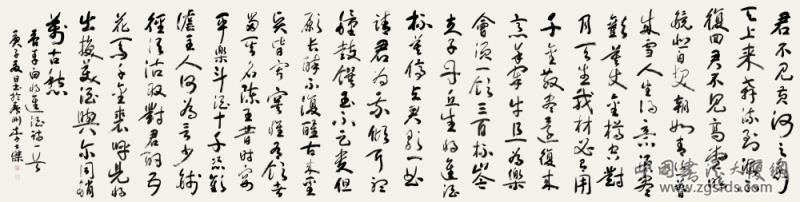 君不見黃河之水
天上來奔流到海不
復回君不見高堂明
鏡悲白髮朝如青絲暮
成雪人生得意須盡
歡莫使金樽空對
月天生我材必有用
千金散盡還復來
烹羊宰牛且為樂
會須一飲三百杯岑
夫子丹丘生將進酒
杯莫停與君歌一曲
請君為我傾耳聽
鐘鼓饌玉不足貴但
願長醉不復醒古來聖
賢皆寂寞惟有飲者
留其名陳王昔時宴
平樂斗酒十千恣歡
謔主人何為言少錢
徑須沽取對君酌五
花馬千金裘呼兒將
出換美酒與爾同銷
萬古愁
李白將進酒詩一首
庚子夏日書於廣州李
www.zgsfds.com